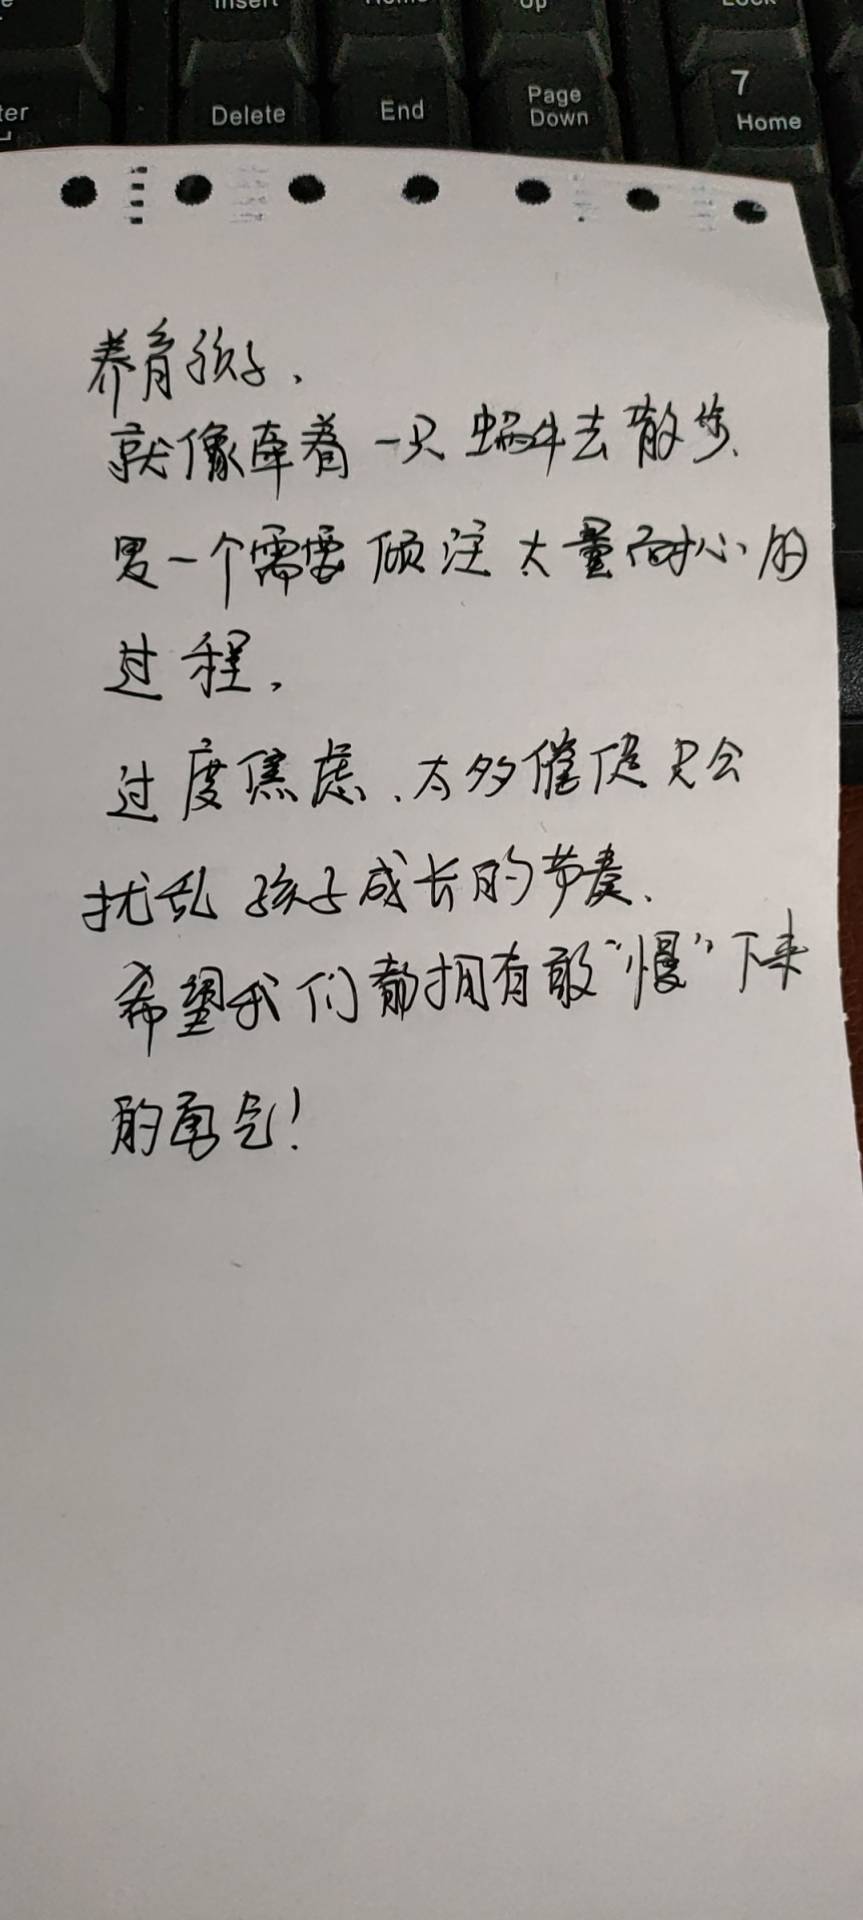 Insert
Home
Up
Lock
Delete
End
Page
Down
7
Home
养育孩子,
就像牵着一只蜗牛去散步.
是一个需要倾注大量耐心的
过程,
过度焦虑、太多催促只会
扰乱孩子成长的节奏.
希望我们都拥有敢“慢”下来
的勇气!